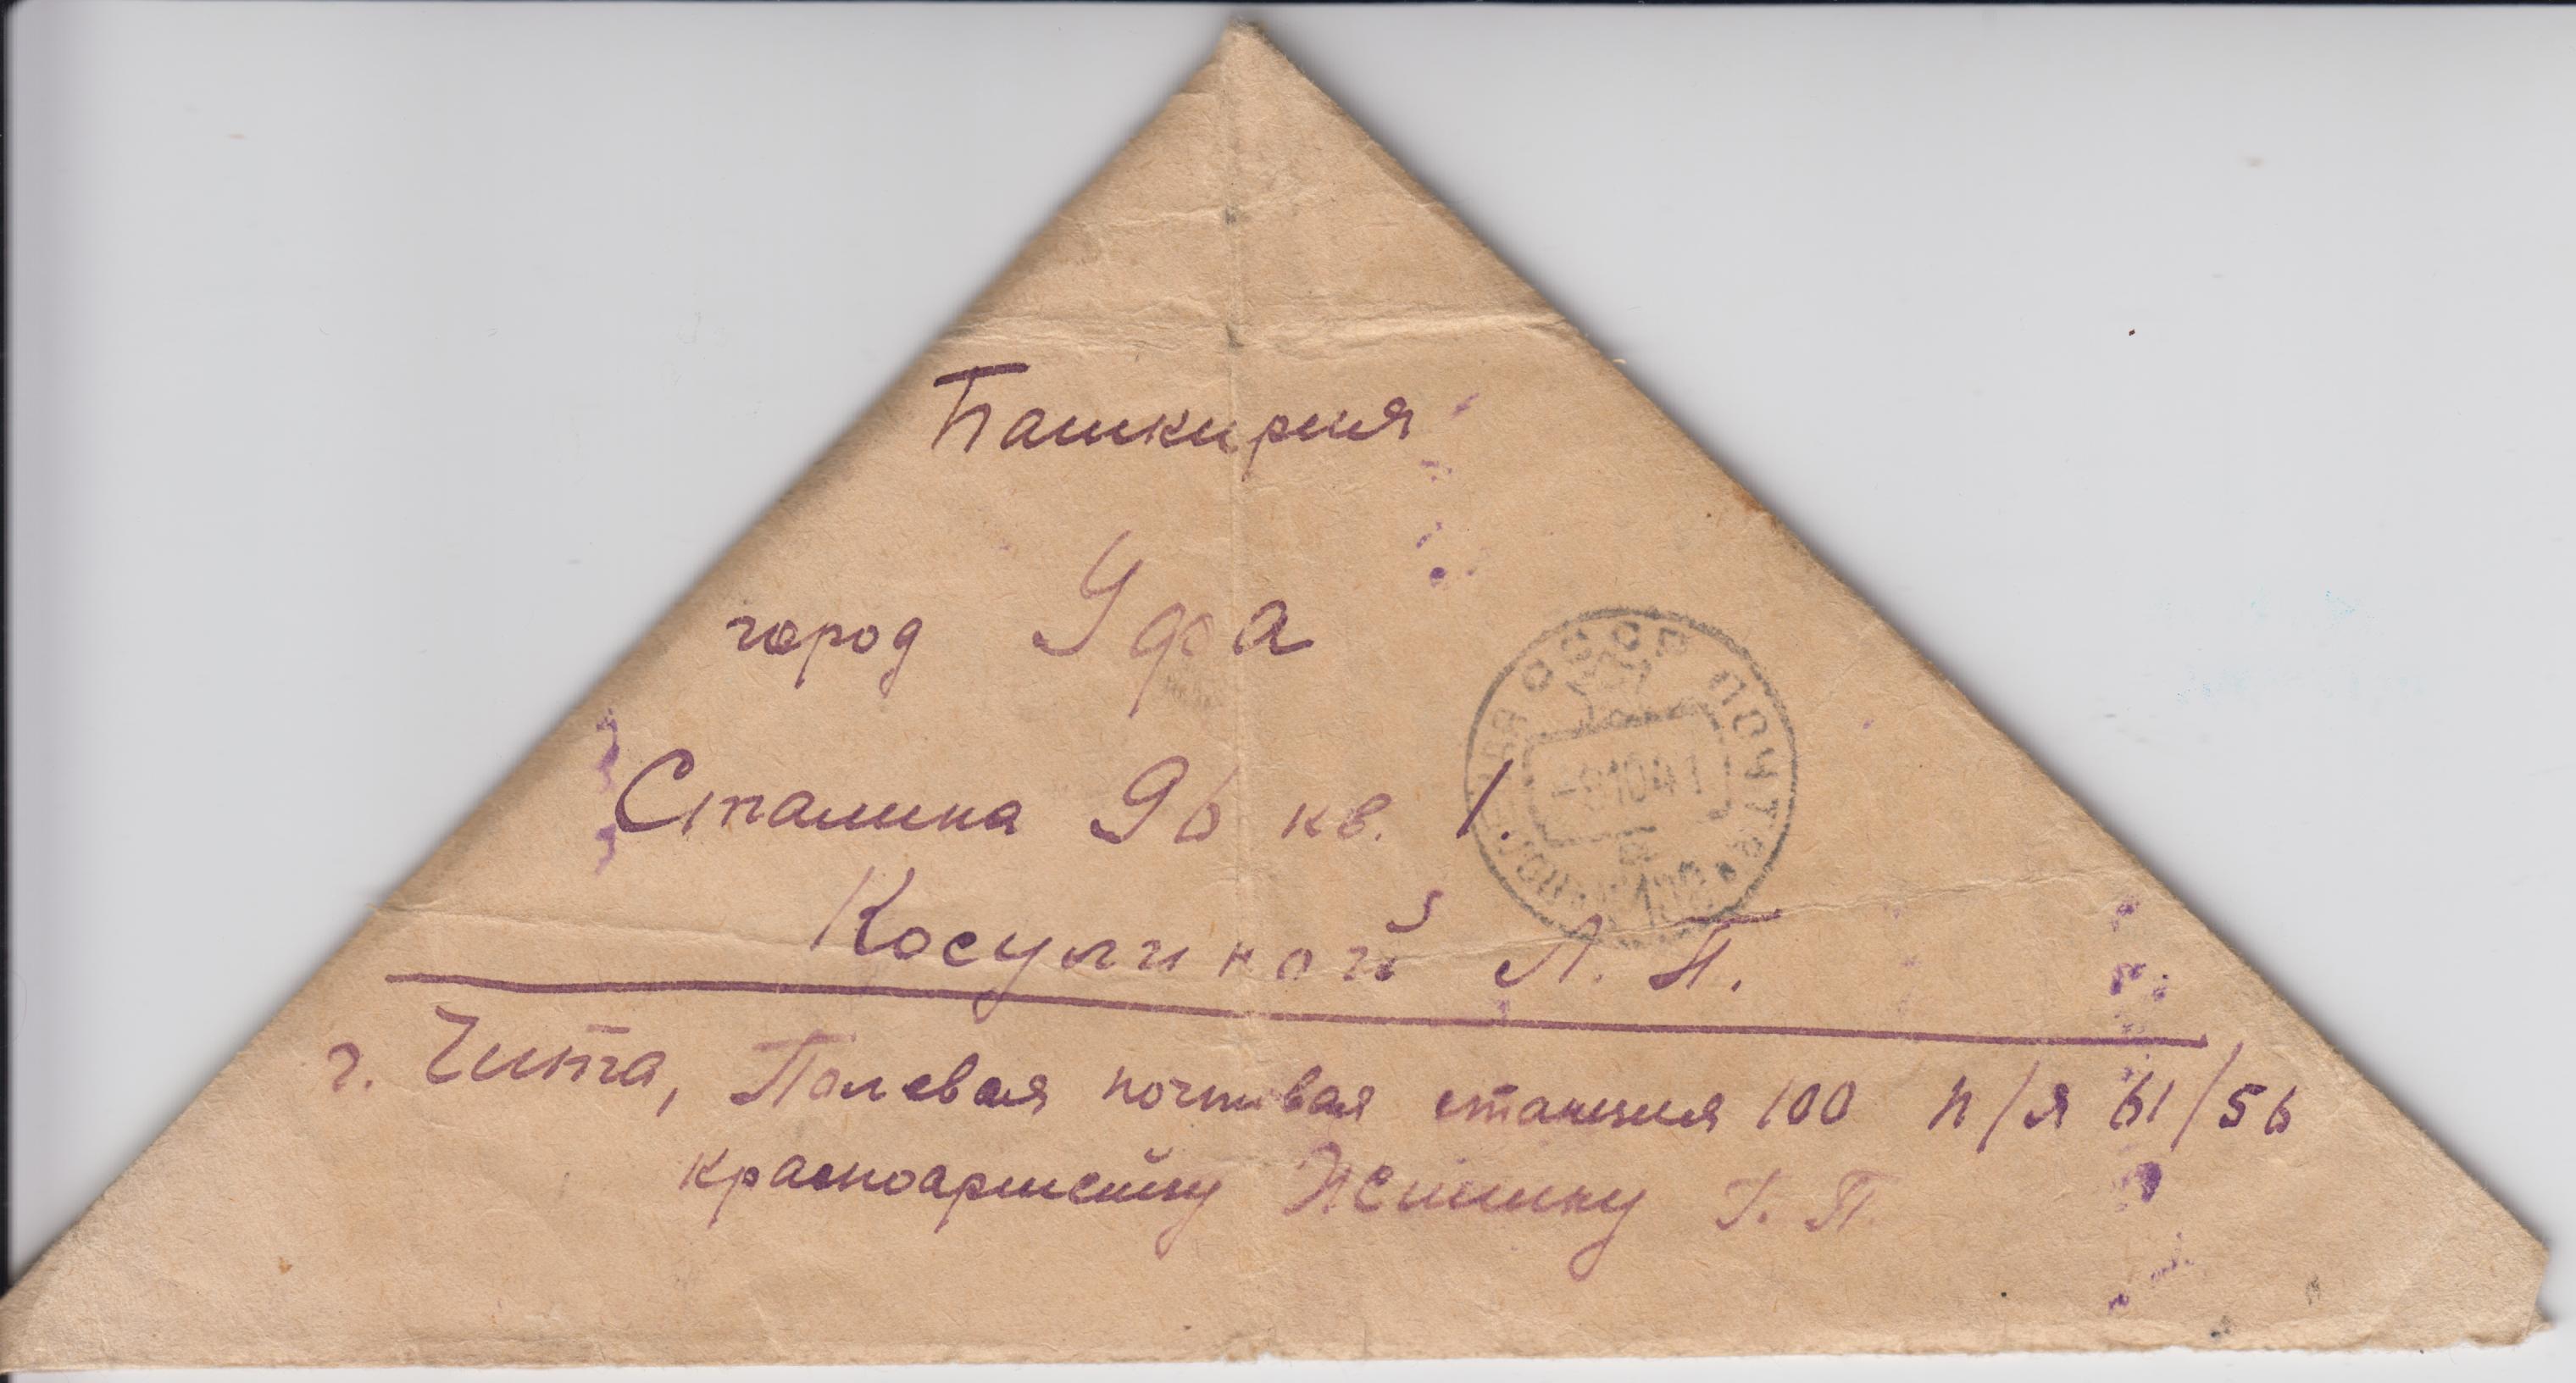 Башкирия
город Уфа
СССР ПОЧТА
-9 10 41
Сталина 96 кв. 1.
Косулиной Л. П.
г. Чита, Полевая почтовая станция 100 п/я 61/56
красноармейцу П.